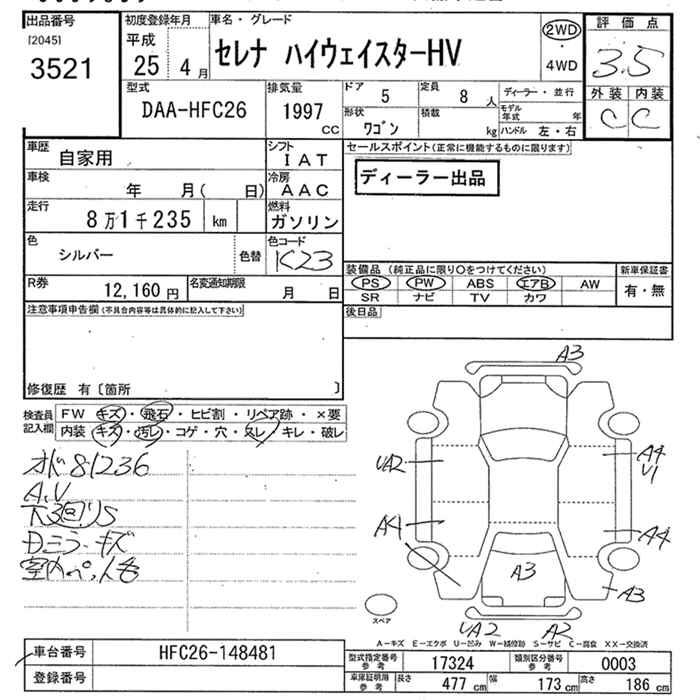 出品番号
[2045]
3521
初度登録年月
平成
25 4月
車名・グレード
セレナ ハイウェイスターHV
2WD
・
4WD
評価点
3.5
外装 内装
C C
型式
DAA-HFC26
排気量
1997
CC
ドア
5
定員
8 人
ディーラー・並行
形状
ワゴン
積載
kg
モデル年式 年
ハンドル 左・右
車歴
自家用
シフト
IAT
車検
年 月( 日)
冷房
AAC
走行
8万1千235 km
燃料
ガソリン
色
シルバー
色替
色コード
K23
R券
12,160 円
名変通知期限
月 日
セールスポイント(正常に機能するものに限ります)
ディーラー出品
装備品 (純正品に限り〇をつけてください)
新車保証書
PS PW ABS エアB AW
SR ナビ TV カワ
有・無
後日品
注意事項申告欄(不具合内容等は具体的に記入して下さい)
修復歴 有〔箇所 〕
検査員記入欄
FW キズ・飛石・ヒビ割・リペア跡・×要
内装 キズ・汚レ・コゲ・穴・スレ・キレ・破レ
オド81236
A,V
下3回リS
Dミラーキズ
A3
UA2
A4
A4
U1
A4
A3
A3
UA2
A2
スペア
A-キズ E-エクボ U-凹み W-補修跡 S-サビ C-腐食 XX-交換済
車台番号
HFC26-148481
登録番号
型式指定番号 参考
17324
類別区分番号 参考
0003
車庫証明用 参考
長さ 477 cm 幅 173 cm 高さ 186 cm